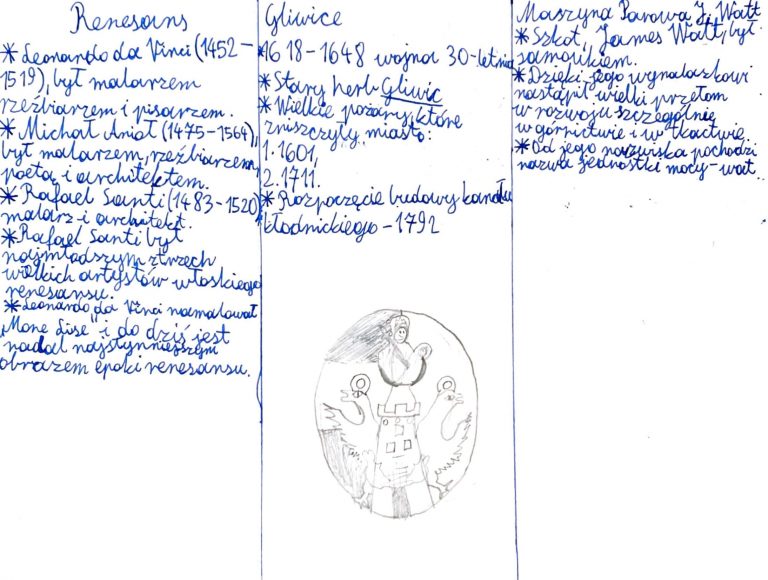 Renesans
* Leonardo da Vinci (1452-
1519), był malarzem
rzeźbiarzem i pisarzem.
* Michał Anioł (1475-1564),
był malarzem, rzeźbiarzem,
poetą i architektem.
* Rafael Santi (1483-1520)
malarz i architekt.
* Rafael Santi był
najmłodszym z trzech
wielkich artystów włoskiego
renesansu.
* Leonardo da Vinci namalował
„Mone Lise" i do dziś jest
nadal najsłynniejszym
obrazem epoki renesansu.
Gliwice
1618-1648 wojna 30-letnia
* Stary herb Gliwic
* Wielkie pożary, które
zniszczyły miasto:
1. 1601,
2. 1711.
* Rozpoczęcie budowy kanału
kłodnickiego - 1792
Maszyna Parowa J. Watt
* Szkot, James Watt, był
samoukiem.
* Dzięki jego wynalazkowi
nastąpił wielki przełom
w rozwoju szczególnie
w górnictwie i w tkactwie.
* Od jego nazwiska pochodzi
nazwa jednostki mocy - wat.